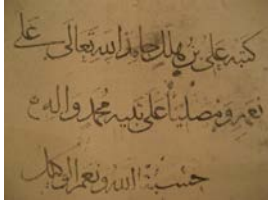 كتبه علي بن هلال حامدا لله تعالى على
نعمه ومصليا على نبيه محمد واله
حسبنا الله ونعم الوكيل